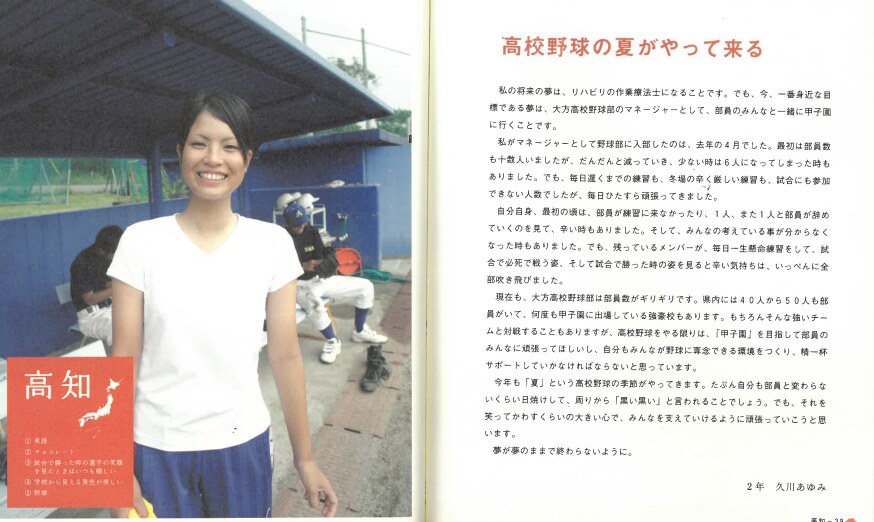 高知
① 英語
② チョコレート
③ 試合で勝った時の選手の笑顔
を見たときはいつも嬉しい
④ 学校から見える景色が美しい
⑤ 野球
高校野球の夏がやって来る
私の将来の夢は、リハビリの作業療法士になることです。でも、今、一番身近な目
標である夢は、大方高校野球部のマネージャーとして、部員のみんなと一緒に甲子園
に行くことです。
私がマネージャーとして野球部に入部したのは、去年の4月でした。最初は部員数
も十数人いましたが、だんだんと減っていき、少ない時は6人になってしまった時も
ありました。でも、毎日遅くまでの練習も、冬場の辛く厳しい練習も、試合にも参加
できない人数でしたが、毎日ひたすら頑張ってきました。
自分自身、最初の頃は、部員が練習に来なかったり、1人、また1人と部員が辞め
ていくのを見て、辛い時もありました。そして、みんなの考えている事が分からなく
なった時もありました。でも、残っているメンバーが、毎日一生懸命練習をして、試
合で必死で戦う姿、そして試合で勝った時の姿を見ると辛い気持ちは、いっぺんに全
部吹き飛びました。
現在も、大方高校野球部は部員数がギリギリです。県内には40人から50人も部
員がいて、何度も甲子園に出場している強豪校もあります。もちろんそんな強いチー
ムと対戦することもありますが、高校野球をやる限りは、「甲子園」を目指して部員の
みんなに頑張ってほしいし、自分もみんなが野球に専念できる環境をつくり、精一杯
サポートしていかなければならないと思っています。
今年も「夏」という高校野球の季節がやってきます。たぶん自分も部員と変わらな
いくらい日焼けして、周りから「黒い黒い」と言われることでしょう。でも、それを
笑ってかわすくらいの大きい心で、みんなを支えていけるように頑張っていこうと思
います。
夢が夢のままで終わらないように。
2年 久川あゆみ
高知-39